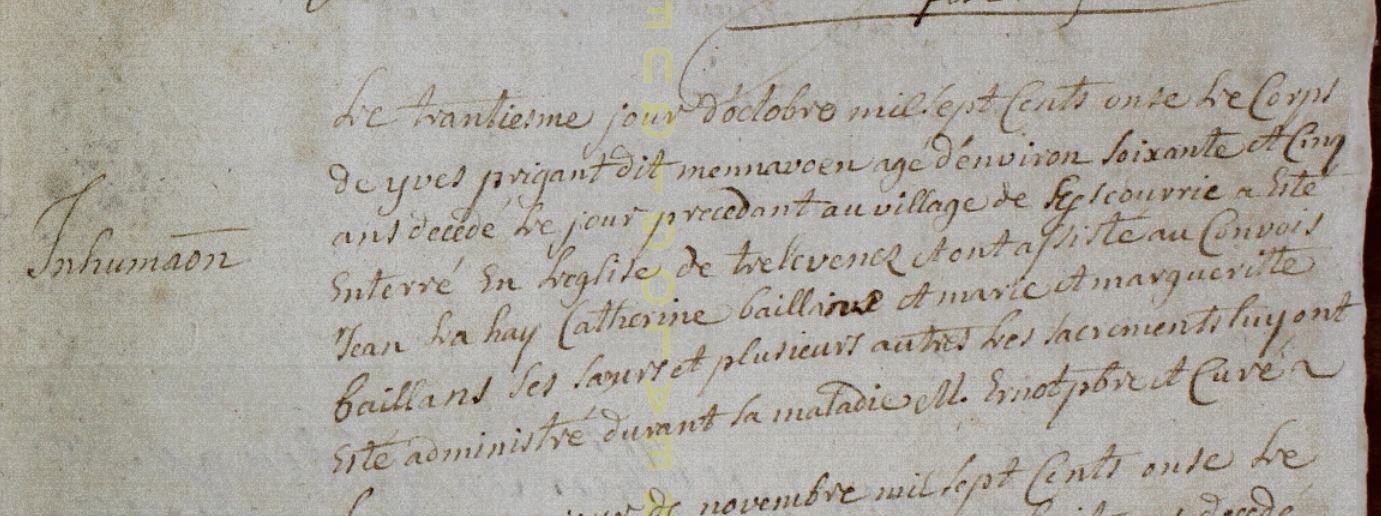 Le trantiesme jour d'octobre mil sept Cents onse Le Corps
de yves prigant dit mennavoen agé d'environ soixante et Cinq
ans decedé Le jour precedant au village de a Esté
Inhumaõn
Enterré En Leglise de trelevenez et ont assisté au Convois
Jean La hay Catherine et marie et margueritte
baillans ses sœurs et plusieurs autres Les sacrements luy ont
Esté administré durant sa maladie M. Ernot pbre et Curé
novembre mil sept Cents onse Le
decedé